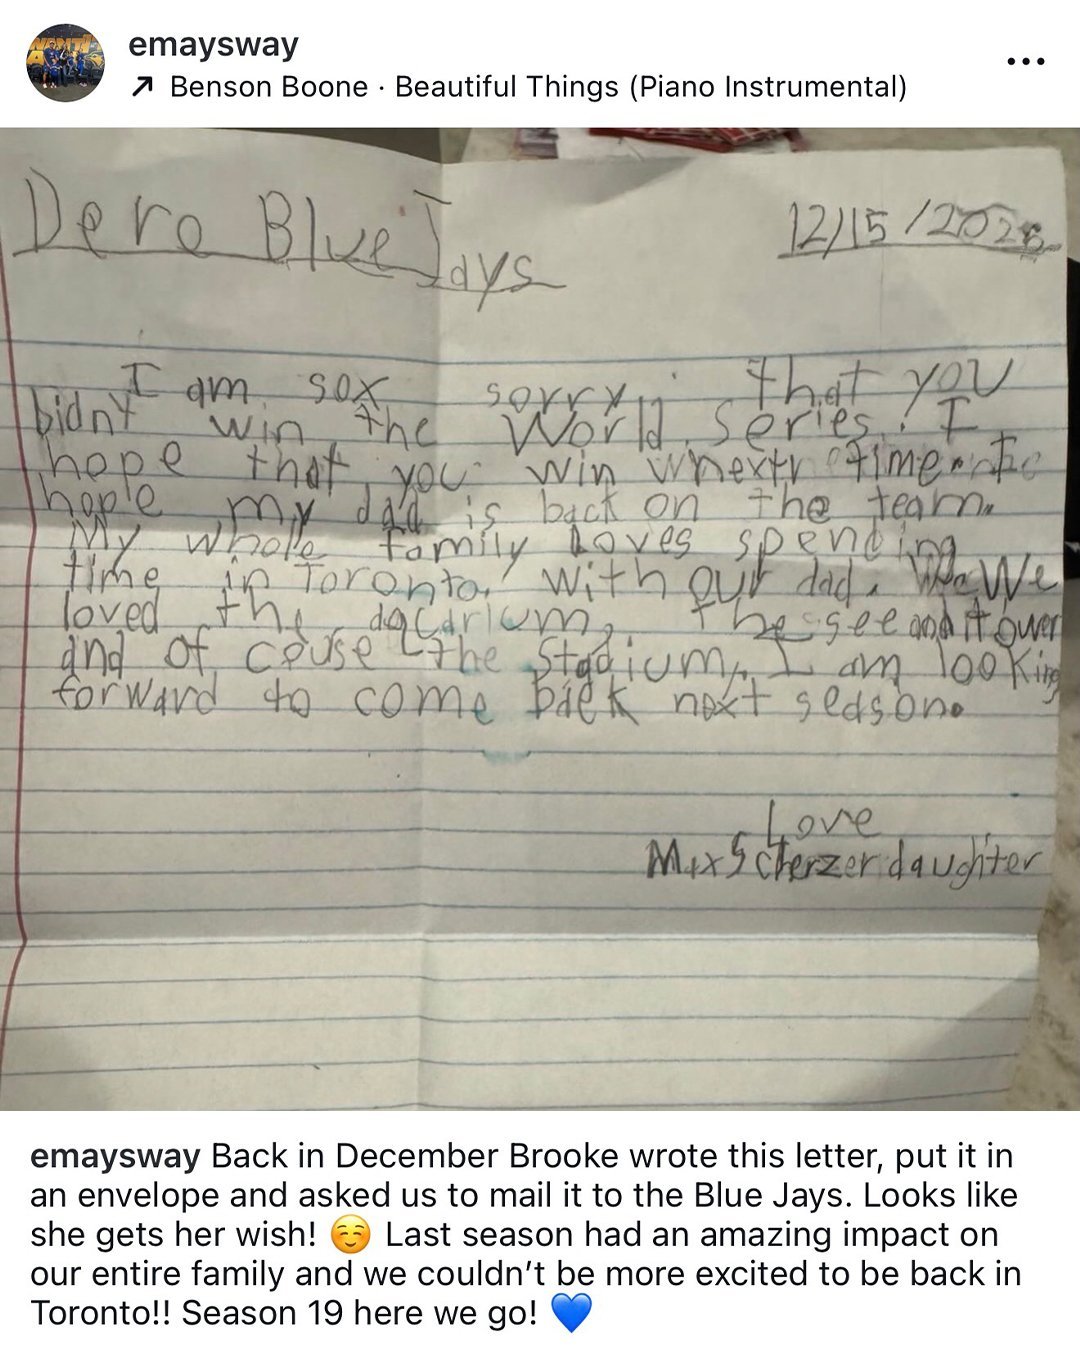 emaysway
Benson Boone · Beautiful Things (Piano Instrumental)
Dero Blue Jays
12/15/2025
I am sox sorry that you
bidnt win the World series. I
hope that you win wnextr time
hople my dad is back on the team.
My whole family loves spending
time in Toronto, with our dad. We We
loved the aqcarium, the see and tower
and of couse the Stadium, I am looking
forward to come back next season.
Love
Max Scherzer daughter
emaysway Back in December Brooke wrote this letter, put it in
an envelope and asked us to mail it to the Blue Jays. Looks like
she gets her wish! ☺️ Last season had an amazing impact on
our entire family and we couldn't be more excited to be back in
Toronto!! Season 19 here we go! 💙